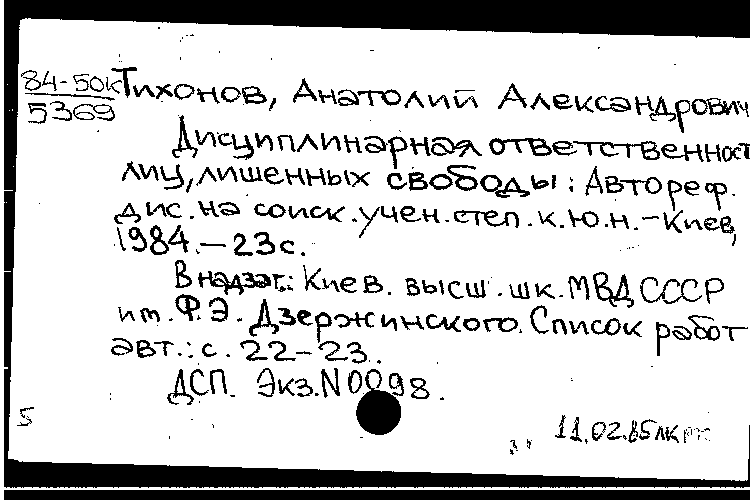 84-50к
5369
Тихонов, Анатолий Александрович
Дисциплинарная ответственност
лиц, лишенных свободы: Автореф.
дис. на соиск. учен. степ. к.ю.н. – Киев,
1984. – 23 с.
В надзаг.: Киев. высш. шк. МВД СССР
им. Ф.Э. Дзержинского. Список работ
авт.: с. 22–23.
ДСП. Экз. N 0098.
5
11.02.85 лк